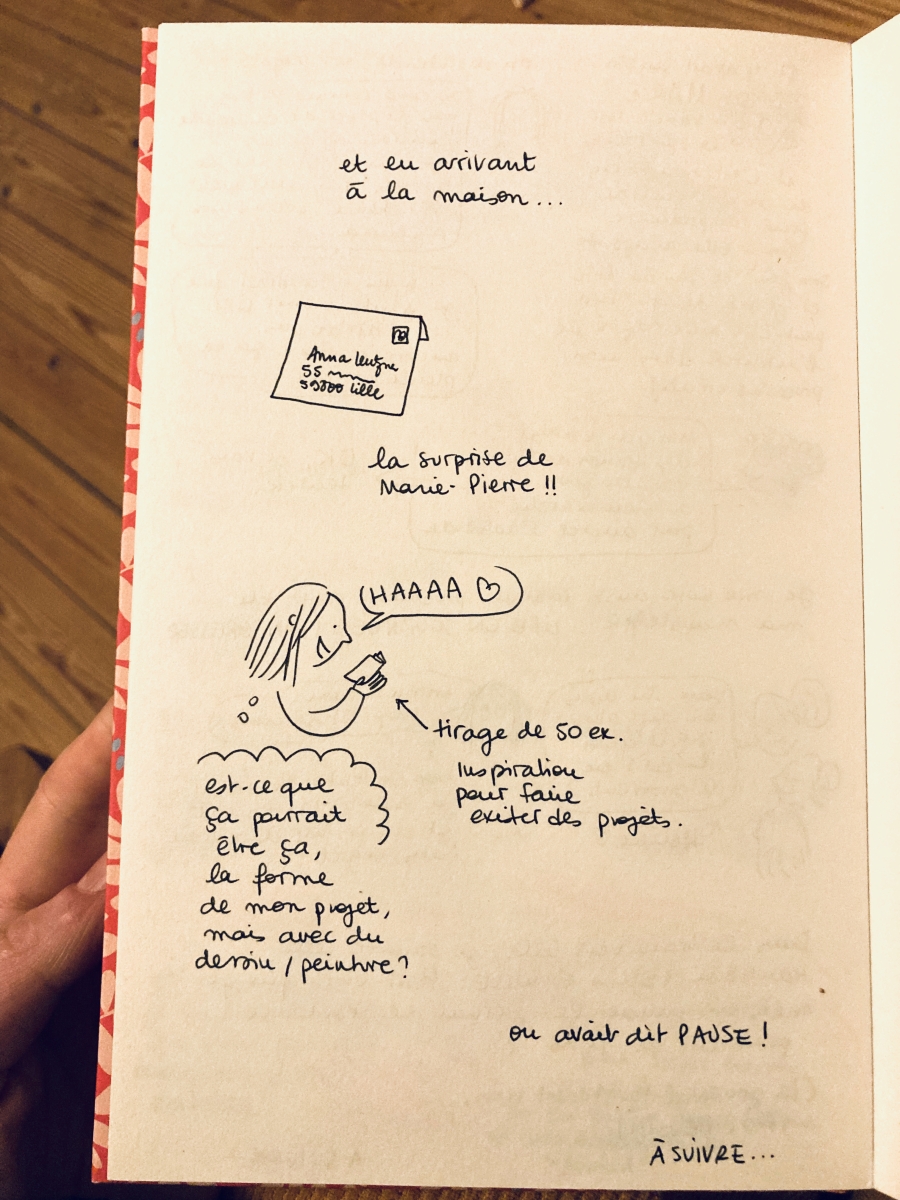 et en arrivant
à la maison...
Anna
55
59000 Lille
la surprise de
Marie-Pierre !!
HAAAA ♡
tirage de 50 ex.
Inspiration
pour faire
exister des projets.
est-ce que
ça pourrait
être ça,
la forme
de mon projet,
mais avec du
dessin / peinture ?
on avait dit PAUSE !
À SUIVRE...